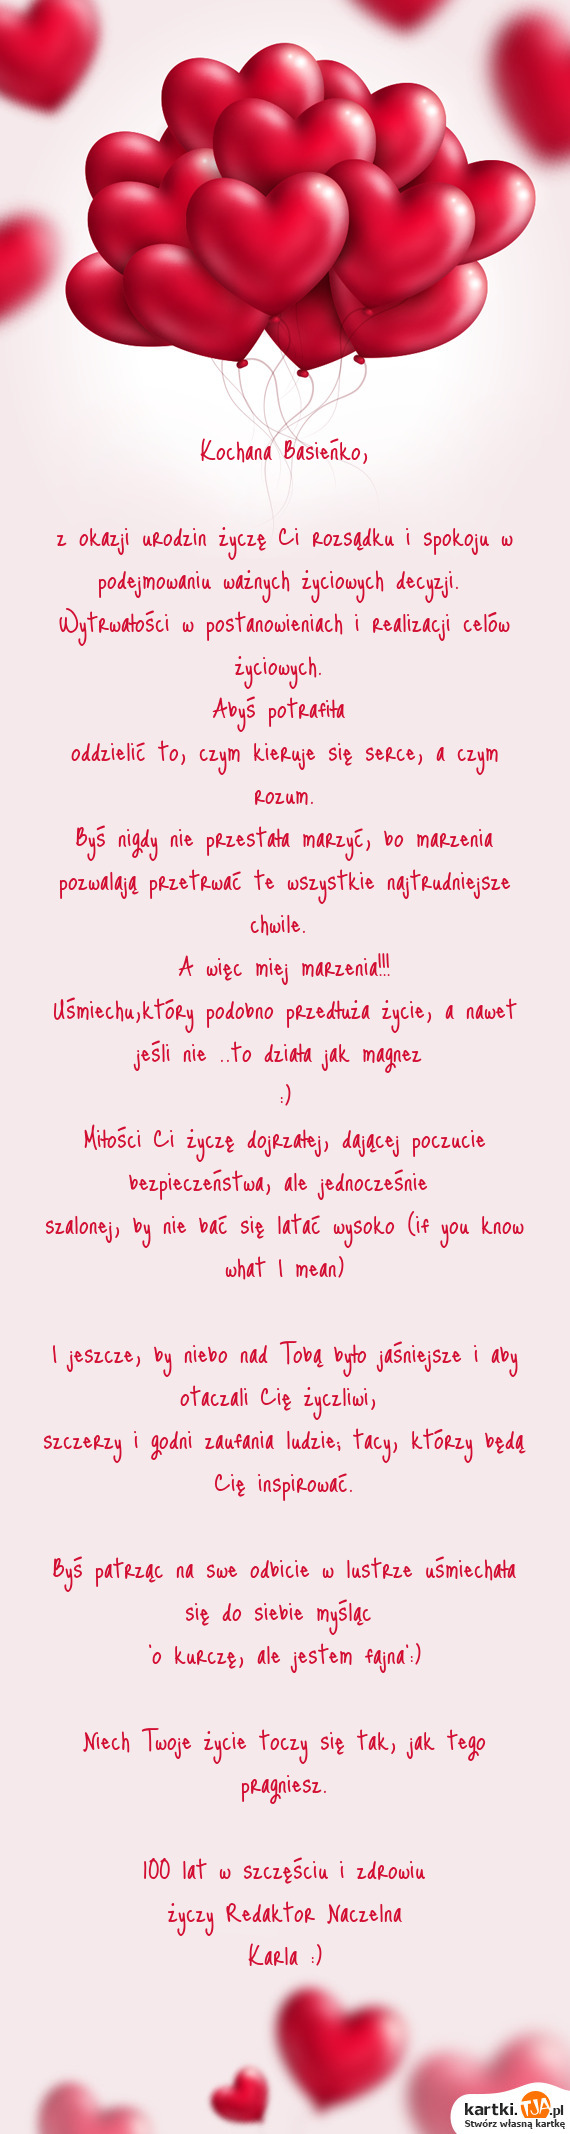 Kochana Basieńko,
z okazji urodzin życzę Ci rozsądku i spokoju w
podejmowaniu ważnych życiowych decyzji.
Wytrwałości w postanowieniach i realizacji celów
życiowych.
Abyś potrafiła
oddzielić to, czym kieruje się serce, a czym
rozum.
Byś nigdy nie przestała marzyć, bo marzenia
pozwalają przetrwać te wszystkie najtrudniejsze
chwile.
A więc miej marzenia!!!
Uśmiechu,który podobno przedłuża życie, a nawet
jeśli nie ..to działa jak magnez
:)
Miłości Ci życzę dojrzałej, dającej poczucie
bezpieczeństwa, ale jednocześnie
szalonej, by nie bać się latać wysoko (if you know
what I mean)
I jeszcze, by niebo nad Tobą było jaśniejsze i aby
otaczali Cię życzliwi,
szczerzy i godni zaufania ludzie; tacy, którzy będą
Cię inspirować.
Byś patrząc na swe odbicie w lustrze uśmiechała
się do siebie myśląc
'o kurczę, ale jestem fajna':)
Niech Twoje życie toczy się tak, jak tego
pragniesz.
100 lat w szczęściu i zdrowiu
życzy Redaktor Naczelna
Karla :)
kartki.TJA.pl
Stwórz własną kartkę